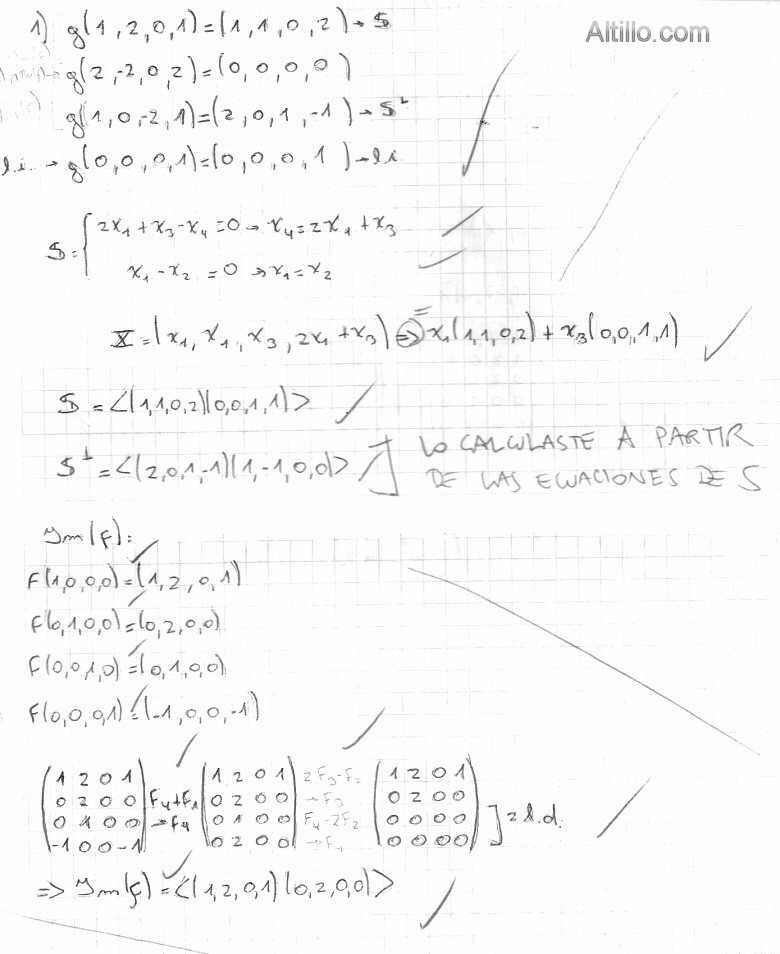 Altillo.com
1) g(1,2,0,1)=(1,1,0,2)→S
g(2,-2,0,2)=(0,0,0,0)
g(1,0,-2,1)=(2,0,1,-1)→S⊥
l.i. → g(0,0,0,1)=(0,0,0,1)→l.i
S={ 2x₁+x₃-x₄=0→x₄=2x₁+x₃
x₁-x₂=0→x₁=x₂
X=(x₁,x₁,x₃,2x₁+x₃) ⇒ = x₁(1,1,0,2)+x₃(0,0,1,1)
S=<(1,1,0,2)(0,0,1,1)>
S⊥=<(2,0,1,-1)(1,-1,0,0)> ] LO CALCULASTE A PARTIR
DE LAS ECUACIONES DE S
Im(f):
F(1,0,0,0)=(1,2,0,1)
F(0,1,0,0)=(0,2,0,0)
F(0,0,1,0)=(0,1,0,0)
F(0,0,0,1)=(-1,0,0,-1)
(1 2 0 1) (1 2 0 1) 2F₃-F₂ (1 2 0 1)
(0 2 0 0) F₄+F₁ (0 2 0 0) →F₃ (0 2 0 0)
(0 1 0 0) →F₄ (0 1 0 0) F₄-2F₂ (0 0 0 0)
(-1 0 0 -1) (0 2 0 0) (0 0 0 0) ] 2 l.d.
⇒ Im(f)=<(1,2,0,1)(0,2,0,0)>